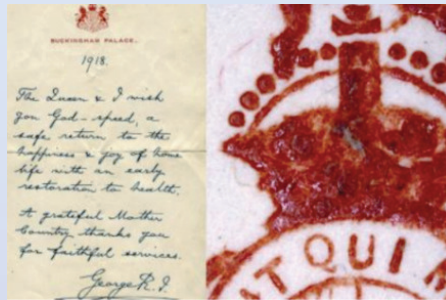 BUCKINGHAM PALACE.
1918.
The Queen & I wish
you God-speed, a
safe return to the
happiness & joy of home
life with an early
restoration to health.
A grateful Mother
Country thanks you
for faithful services.
George R.I.
IT QUI M